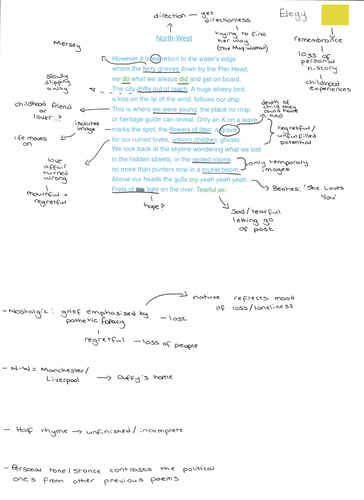 direction → get directioness
Elegy
trying to find her way (The Map Woman)
North-West
Mersey
remembrance
loss of personal history
childhood experiences
However it is we return to the water's edge
where the ferry grieves down by the Pier Head,
we do what we always did and get on board.
The city drifts out of reach. A huge silvery bird,
a kiss on the lip of the wind, follows our ship.
This is where we were young, the place no map
or heritage guide can reveal. Only an X on a wave
marks the spot, the flowers of litter, a grave
for our ruined loves, unborn children, ghosts.
We look back at the skyline wondering what we lost
in the hidden streets, in the rented rooms,
no more than punters now in a tourist boom.
Above our heads the gulls cry yeah yeah yeah.
Frets of light on the river. Tearful air.
slowly slipping away
childhood friend or lover..?
isolated image
life moves on
love affair turned wrong
mournful + regretful
death of child they could have had
regretful/ unfulfilled potential
only temporary images
Beatles: 'She Loves You'
hope?
Sad/tearful letting go of past
- Nostalgic: grief emphasised by pathetic fallacy
→ lost
nature reflects mood of loss/loneliness
regretful → loss of people
- N-W = Manchester/ Liverpool → Duffy's home
- Half rhyme → unfinished/incomplete
- Personal tone/stance contrasts the political ones from other previous poems